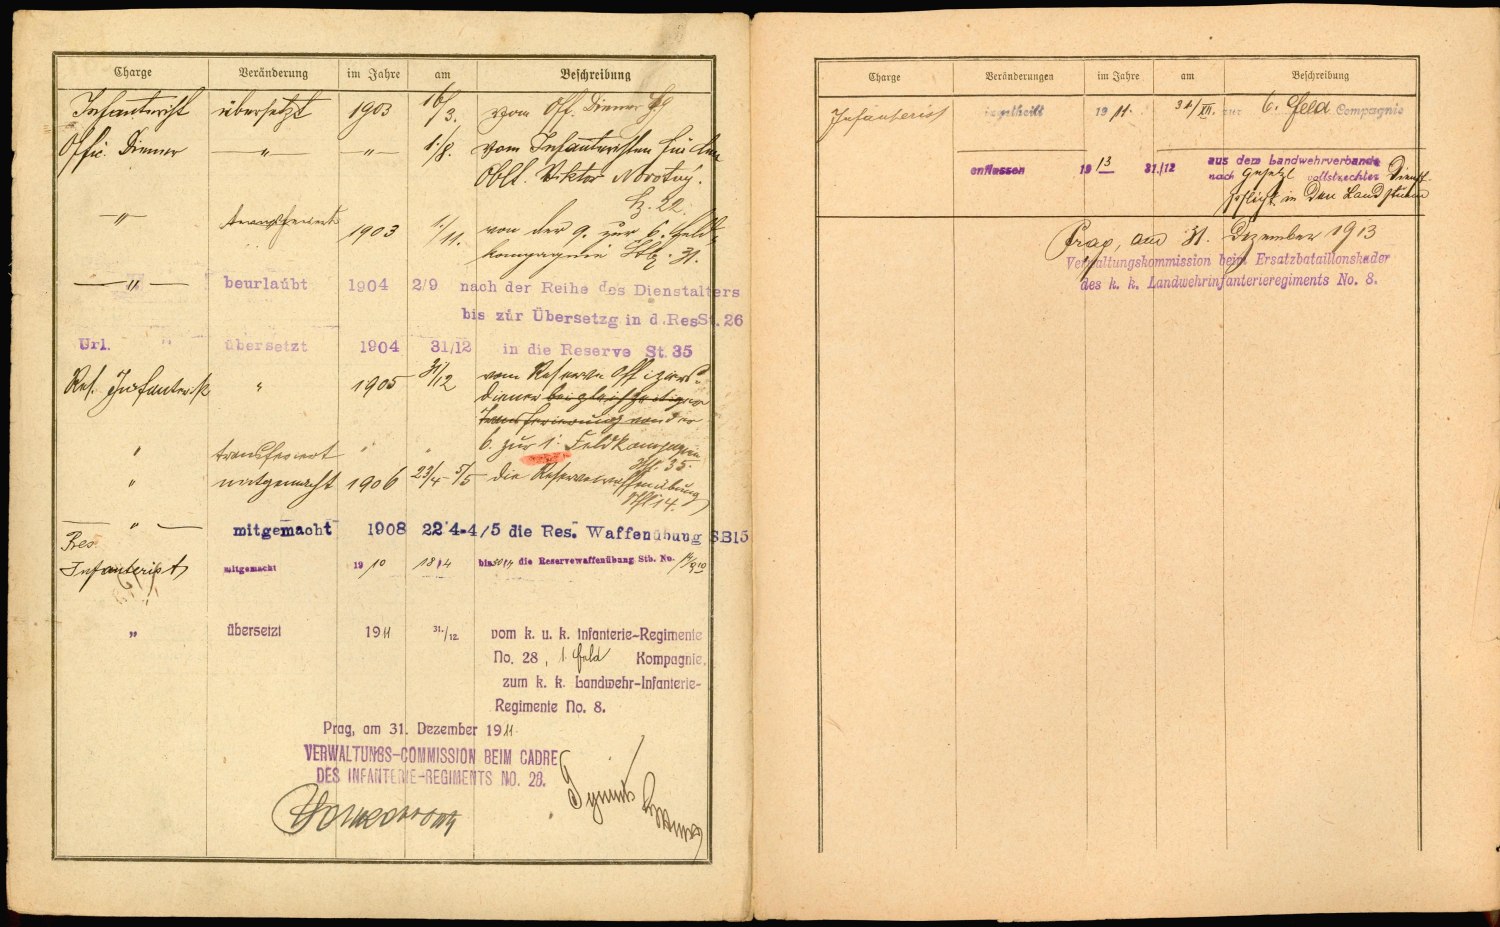 Charge Veränderung im Jahre am Beschreibung
Infanterist übersetzt 1903 16/3. vom Off. Diener
Offic. Diener " " 1./8. vom Infanteristen für den
Oblt. Viktor Novotný.
22.
" transferirt 1903 1./11. von der 9. zur 6. Feld
kompagnie 31.
" beurlaubt 1904 2/9 nach der Reihe des Dienstalters
bis zur Übersetzg in d. Res St. 26
Url. " übersetzt 1904 31/12 in die Reserve St. 35
Res. Infanterist " 1905 31/12 vom Reserve Offiziers-
diener bei gleichzeitiger
Transferierung von der
6. zur 1. Feldkompagnie
" transferiert " " 35.
" mitgemacht 1906 23/4-5/5 die Reservewaffenübung
14.
" mitgemacht 1908 22 4-4/5 die Res. Waffenübung SB15
Res.
Infanterist mitgemacht 1910 18/4 bis 30/4 die Reservewaffenübung Stb. No.
" übersetzt 1911 31./12 vom k. u. k. Infanterie-Regimente
No. 28, 1. Feld Kompagnie,
zum k. k. Landwehr-Infanterie-
Regimente No. 8.
Prag, am 31. Dezember 1911
VERWALTUNGS-COMMISSION BEIM CADRE
DES INFANTERIE-REGIMENTS NO. 28.
Charge Veränderungen im Jahre am Beschreibung
Infanterist eingetheilt 1911. 31/XII. zur 6. Feld Compagnie
entlassen 1913 31./12 aus dem Landwehrverbande
nach Gesetzl vollstreckter Dienst-
pflicht in den Landsturm
Prag, am 31. Dezember 1913
Verwaltungskommission beim Ersatzbataillonskader
des k. k. Landwehrinfanterieregiments No. 8.